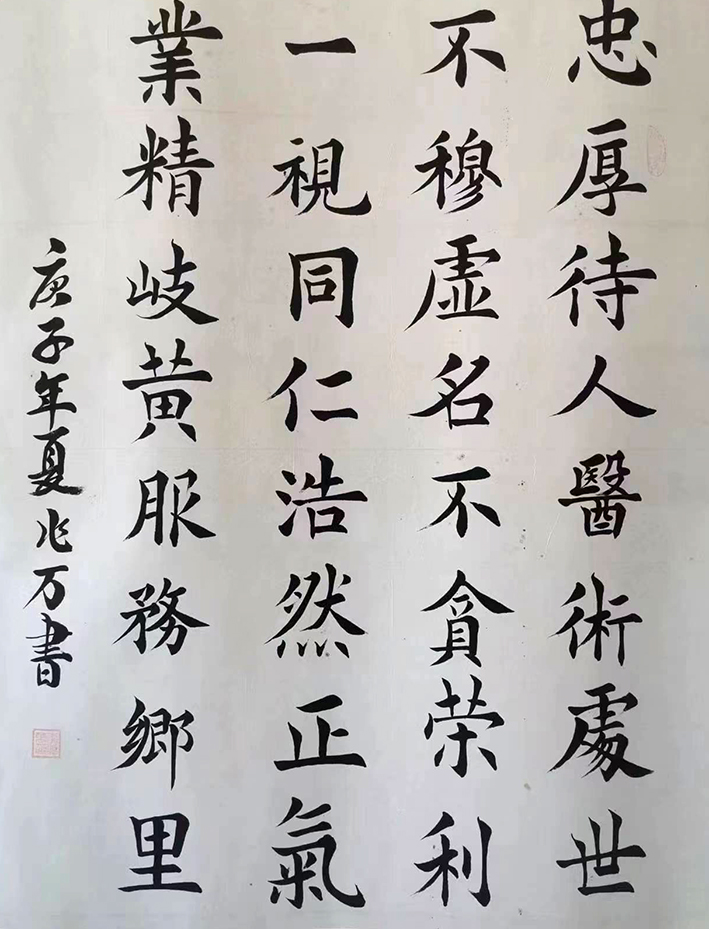 忠厚待人醫術處世
不穆虛名不貪荣利
一視同仁浩然正氣
業精岐黃服務鄉里
庚子年夏兆万書